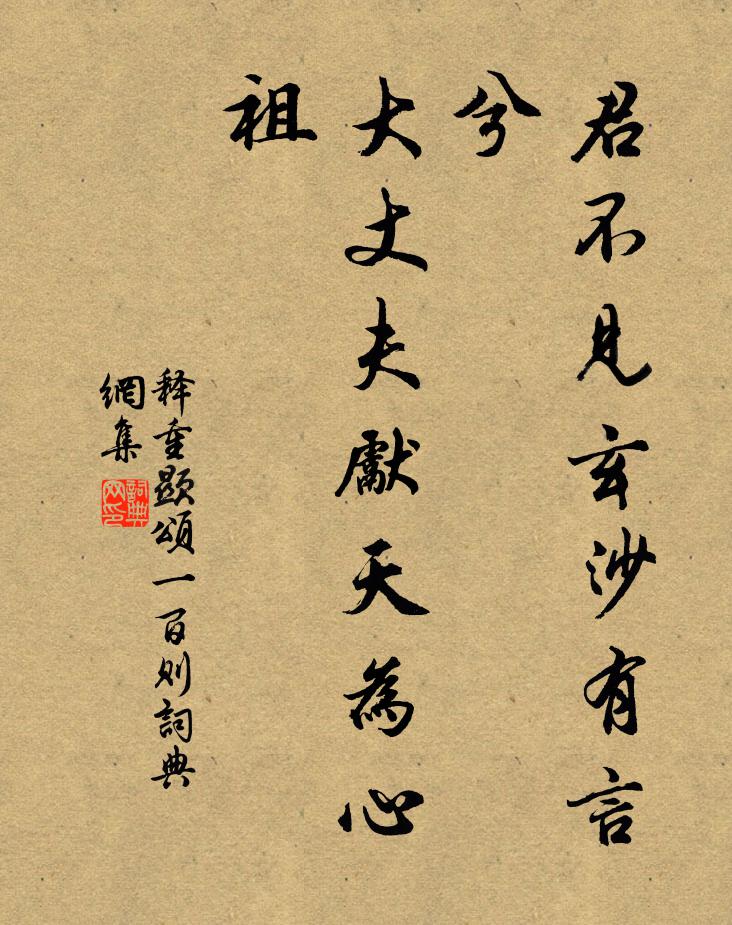 君不見玄沙有言
兮
大丈夫獻天為心
祖
释重顯頌一百則詞典
網集
詞典
网印